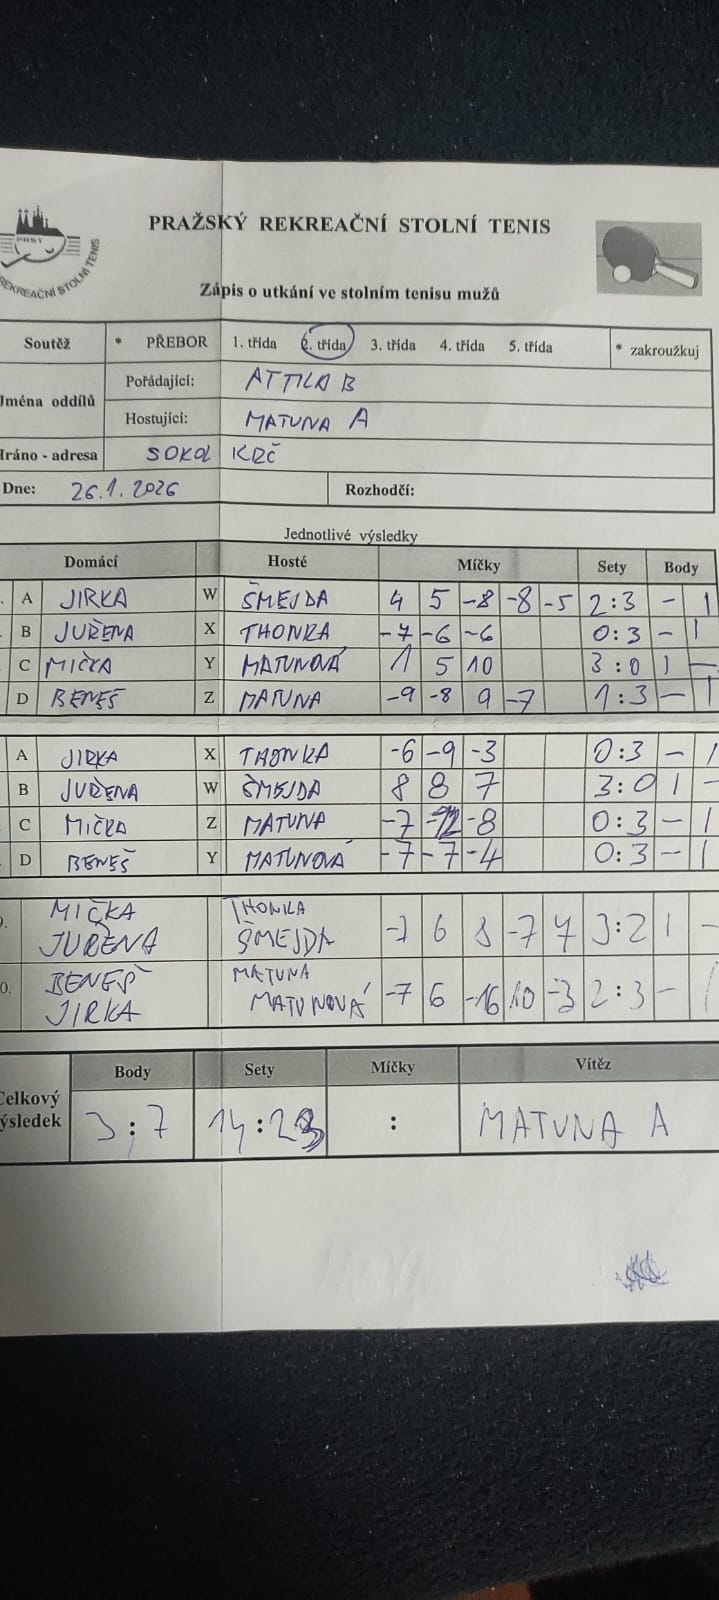 PRAŽSKÝ REKREAČNÍ STOLNÍ TENIS
PRST
REKREAČNÍ STOLNÍ TENIS
Zápis o utkání ve stolním tenisu mužů
Soutěž * PŘEBOR 1. třída 2. třída 3. třída 4. třída 5. třída * zakroužkuj
Jména oddílů
Pořádající: ATTILA B
Hostující: MATUNA A
Hráno - adresa SOKOL KRČ
Dne: 26.1.2026 Rozhodčí:
Jednotlivé výsledky
Domácí Hosté Míčky Sety Body
A JIRKA W ŠMEJDA 4 5 -8 -8 -5 2:3 - 1
B JUŘENA X THONKA -7 -6 -6 0:3 - 1
C MIČKA Y MATUNOVÁ 1 5 10 3:0 1 -
D BENEŠ Z MATUNA -9 -8 9 -7 1:3 - 1
A JIRKA X THONKA -6 -9 -3 0:3 - 1
B JUŘENA W ŠMEJDA 8 8 7 3:0 1 -
C MIČKA Z MATUNA -7 -12 -8 0:3 - 1
D BENEŠ Y MATUNOVÁ -7 -7 -4 0:3 - 1
MIČKA THONKA
JUŘENA ŠMEJDA 6 8 -7 3:2 1 -
0. BENEŠ MATUNA
JIRKA MATUNOVÁ -7 6 -16 10 -3 2:3 - 1
Celkový výsledek
Body Sety Míčky Vítěz
3:7 14:23 : MATUNA A